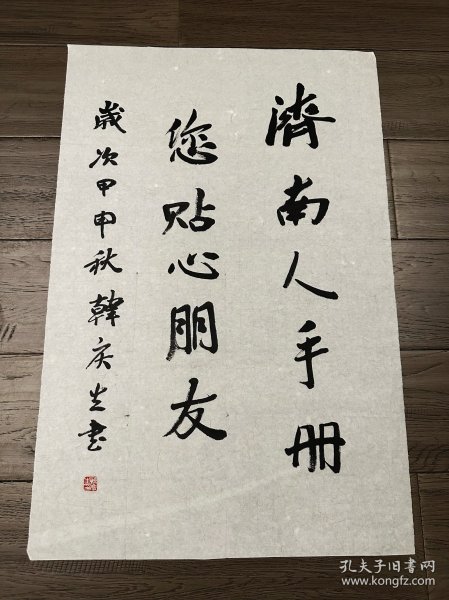 濟南人手册
您贴心朋友
歲次甲申秋韓庆生书
孔夫子旧书网
www.kongfz.com